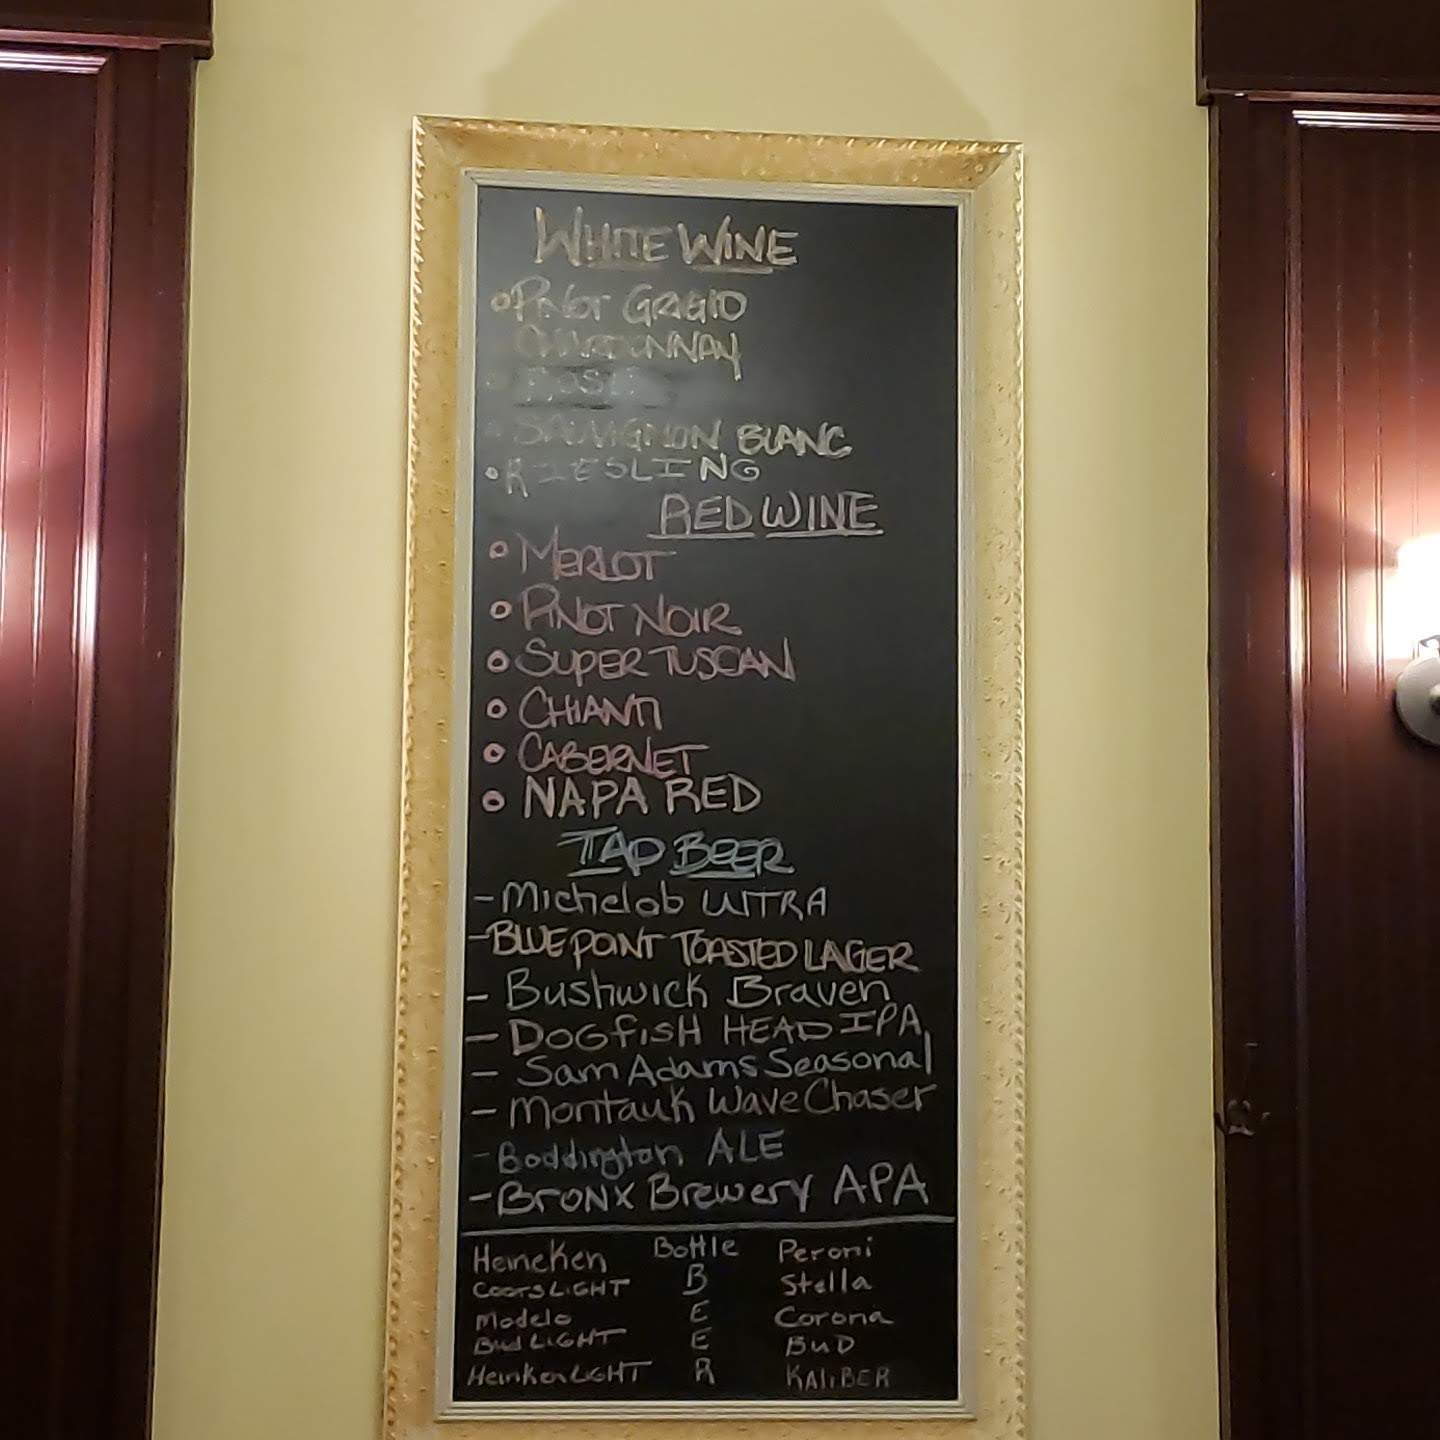 WHITE WINE
PINOT GRIGIO
CHARDONNAY
ROSE
SAUVIGNON BLANC
RIESLING
RED WINE
MERLOT
PINOT NOIR
SUPER TUSCAN
CHIANTI
CABERNET
NAPA RED
TAP BEER
- Michelob ULTRA
- BLUE POINT TOASTED LAGER
- Bushwick Braven
- DOGFISH HEAD IPA
- Sam Adams Seasonal
- Montauk Wave Chaser
- Boddington ALE
- BRONX Brewery APA
Heineken Bottle Peroni
COORS LIGHT B Stella
Modelo E Corona
Bud LIGHT E BUD
Heinken LIGHT R KALIBER